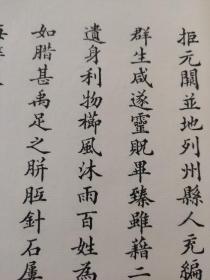 拒元闕並地列州縣人充編
群生咸遂靈貺畢臻雖藉二
遺身利物櫛風沐雨百姓為
如腊甚禹足之胼胝針石屢